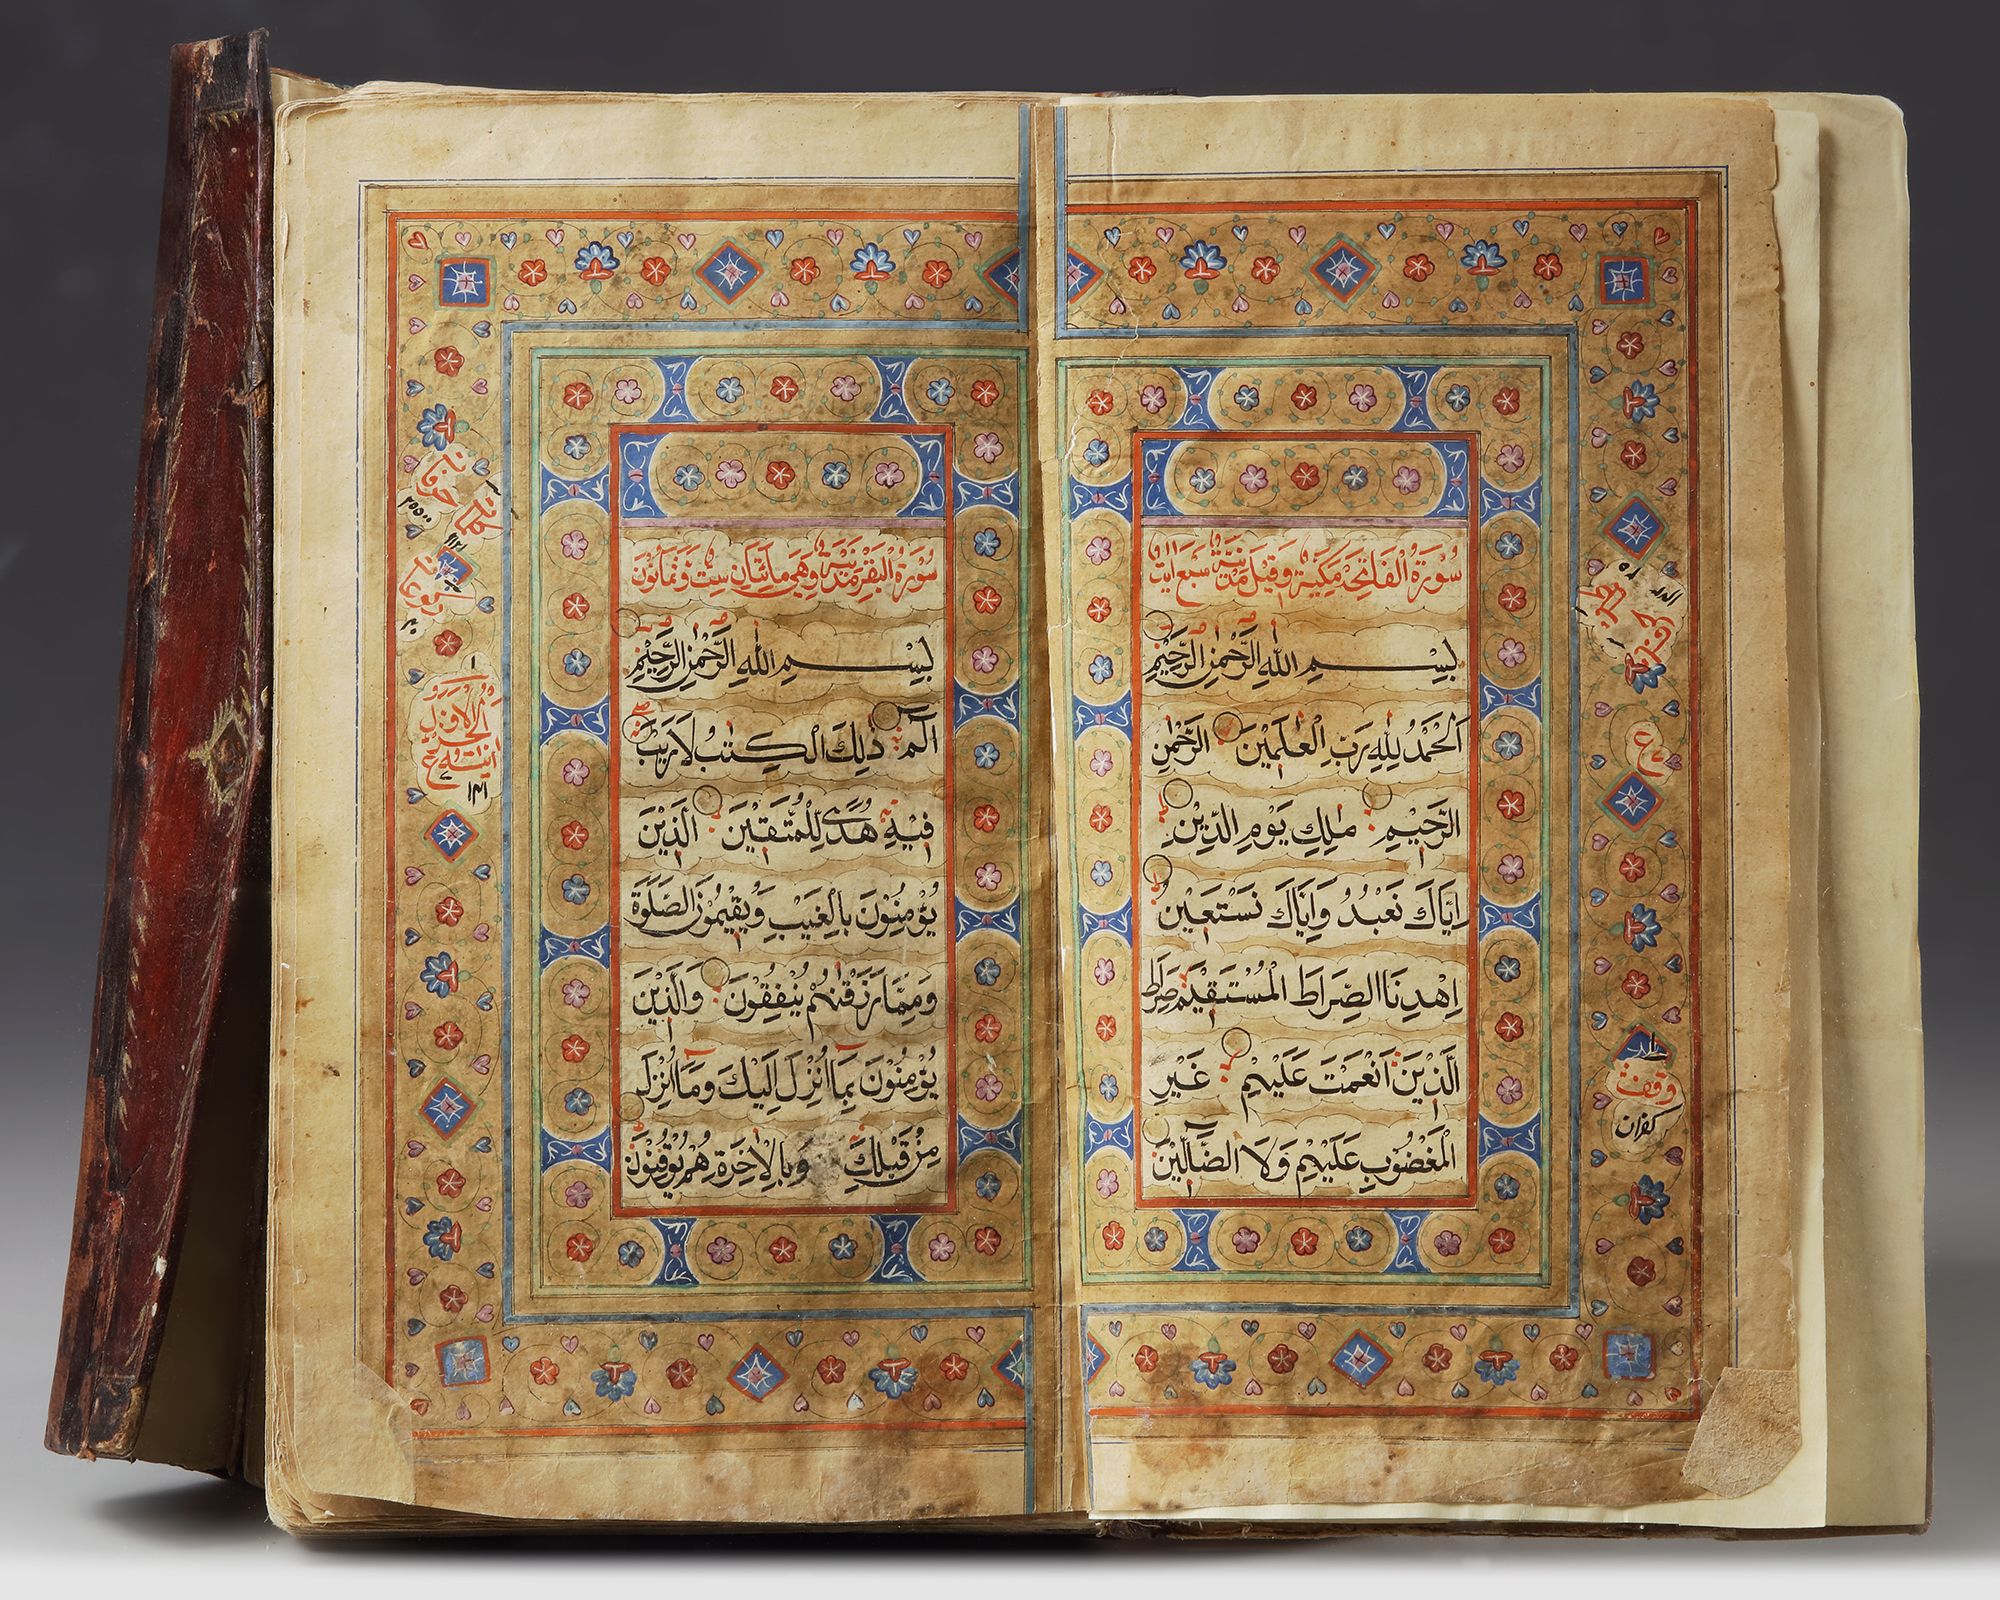 سُوْرَةُ الْفَاتِحَة مَكِيَّةٌ وَقِيْلَ مَدَنِيَّةٌ سبع اٰيات
بِسْمِ اللّٰهِ الرَّحْمٰنِ الرَّحِيْمِ
اَلْحَمْدُ لِلّٰهِ رَبِّ الْعٰلَمِيْنَ الرَّحْمٰنِ
الرَّحِيْمِ مٰلِكِ يَوْمِ الدِّيْنِ
اِيَّاكَ نَعْبُدُ وَاِيَّاكَ نَسْتَعِيْنُ
اِهْدِنَا الصِّرَاطَ الْمُسْتَقِيْمَ صِرَاطَ
الَّذِيْنَ اَنْعَمْتَ عَلَيْهِمْ غَيْرِ
الْمَغْضُوْبِ عَلَيْهِمْ وَلَا الضَّآلِّيْنَ
ع
وقف
كفران
سُوْرَةُ الْبَقَرَة مَدَنِيَّةٌ وَهِيَ مِائَتَانِ وَسِتٌّ وَثَمَانُوْنَ
بِسْمِ اللّٰهِ الرَّحْمٰنِ الرَّحِيْمِ
الٓمٓ ذٰلِكَ الْكِتٰبُ لَا رَيْبَ
فِيْهِ هُدًى لِلْمُتَّقِيْنَ الَّذِيْنَ
يُؤْمِنُوْنَ بِالْغَيْبِ وَيُقِيْمُوْنَ الصَّلٰوةَ
وَمِمَّا رَزَقْنٰهُمْ يُنْفِقُوْنَ وَالَّذِيْنَ
يُؤْمِنُوْنَ بِمَآ اُنْزِلَ اِلَيْكَ وَمَآ اُنْزِلَ
مِنْ قَبْلِكَ وَبِالْاٰخِرَةِ هُمْ يُوْقِنُوْنَ